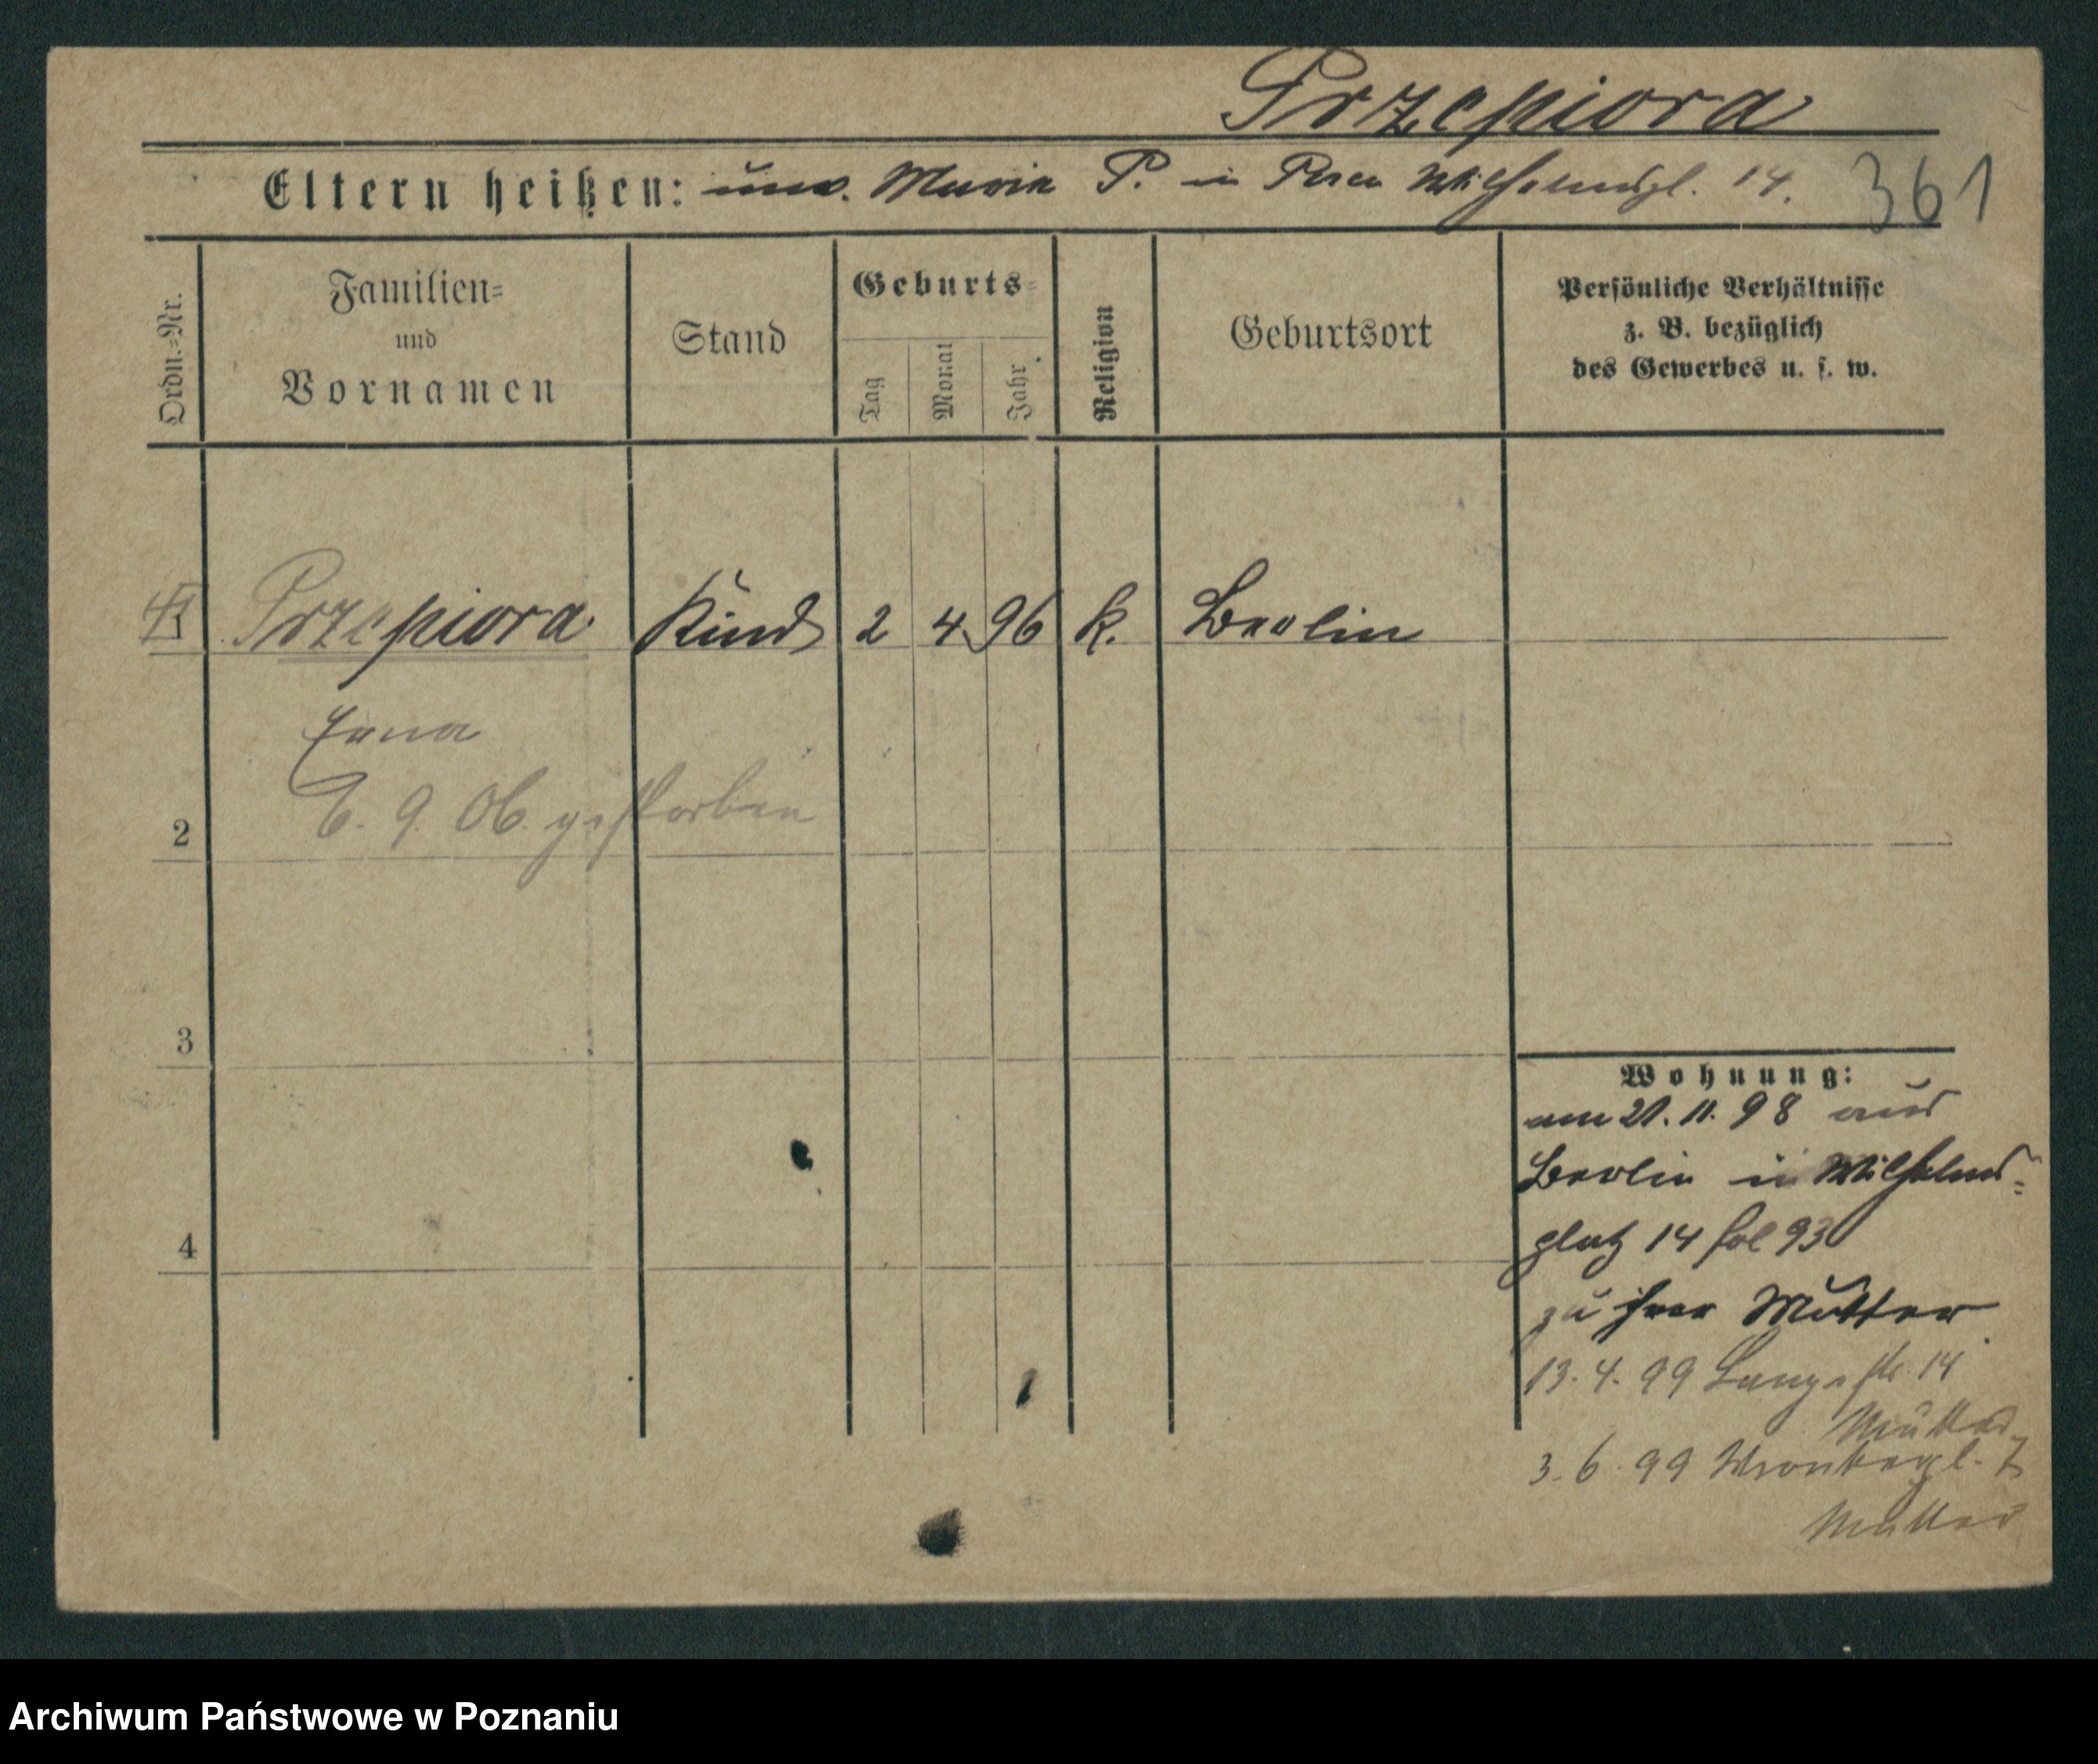 Przepiora
Eltern heißen: unv. Maria P. in Posen Wilhelmspl. 14.
361
Ordn.-Nr.
Familien-
und
Vornamen
Stand
Geburts-
Tag
Monat
Jahr
Religion
Geburtsort
Persönliche Verhältnisse
z. B. bezüglich
des Gewerbes u. s. w.
1 Przepiora Kind 2 4 96 k. Berlin
Erna
6. 9. 06. gestorben
2
3
4
Wohnung:
am 21. 11. 98 aus
Berlin in Wilhelms-
platz 14 bei 93
zu ihrer Mutter
13. 4. 99 Langestr. 14
Mutter
3. 6. 99 Wronkerpl. 7
Mutter
Archiwum Państwowe w Poznaniu